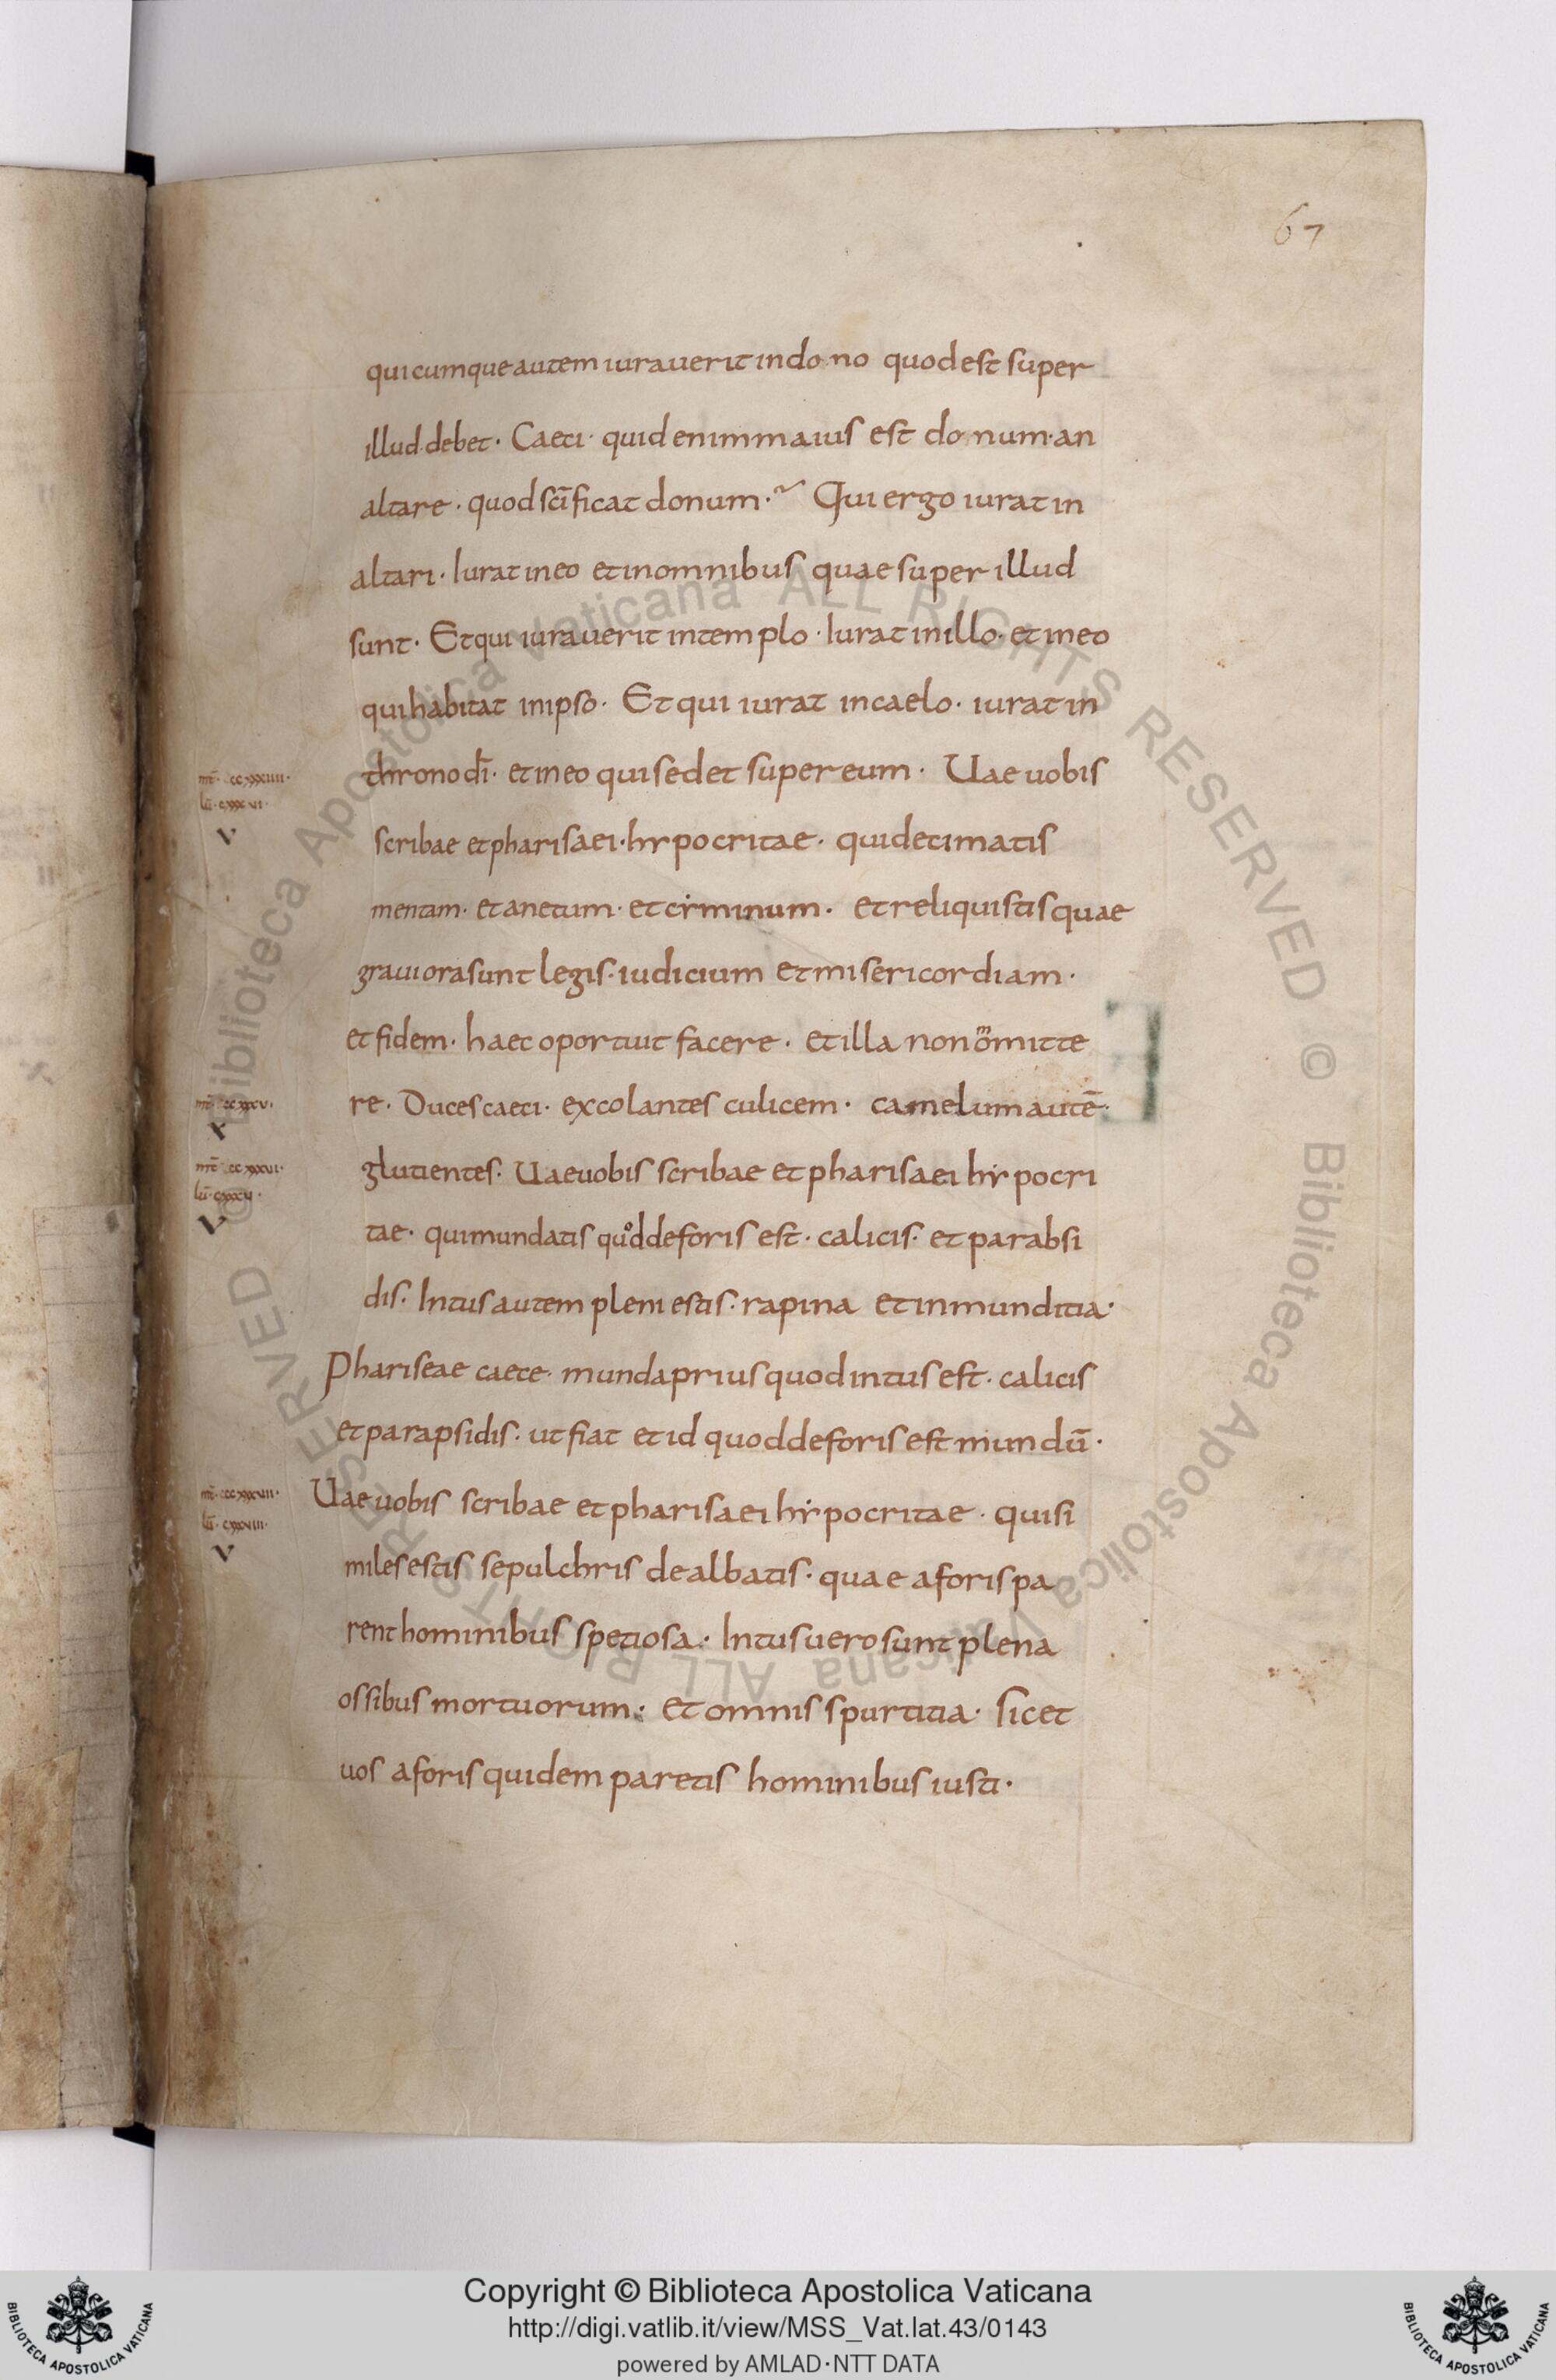 67
quicumque autem iurauerit in dono quod est super
illud debet · Caeci · quid enim maius est donum · an
altare · quod sc̄ificat donum ·~ Qui ergo iurat in
altari · Iurat in eo et in omnibus quae super illud
sunt · Et qui iurauerit in templo · Iurat in illo · et in eo
qui habitat in ipso · Et qui iurat in caelo · iurat in
throno dī · et in eo qui sedet super eum · Uae uobis
scribae et pharisaei · hypocritae · qui decimatis
mentam · et anetum · et cyminum · et reliquistis quae
grauiora sunt legis · iudicium et misericordiam ·
et fidem · haec oportuit facere · et illa non omitte
re · Duces caeci · excolantes culicem · camelum autē ·
glutientes · Uae uobis scribae et pharisaei hẏpocri
tae · qui mundatis quod deforis est · calicis · et parabsi
dis · Intus autem pleni estis · rapina et inmunditia ·
Phariseae caece · munda prius quod intus est · calicis
et parapsidis · ut fiat et id quod deforis est mundū ·
Uae uobis scribae et pharisaei hẏpocritae · qui si
miles estis sepulchris dealbatis · quae aforis pa
rent hominibus spetiosa · Intus uero sunt plena
ossibus mortuorum · et omnis spurtitia · sic et
uos aforis quidem paretis hominibus iusti ·
Copyright © Biblioteca Apostolica Vaticana
http://digi.vatlib.it/view/MSS_Vat.lat.43/0143
powered by AMLAD·NTT DATA
BIBLIOTECA APOSTOLICA VATICANA
BIBLIOTECA APOSTOLICA VATICANA